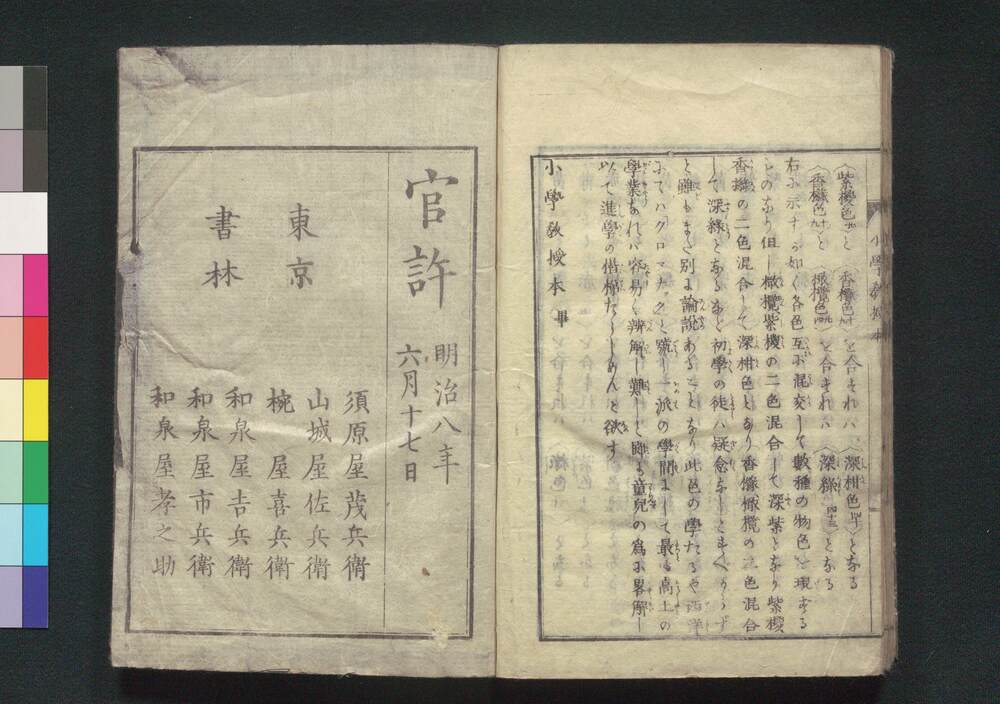 〈紫櫌色廿〉と〈香櫞色八十〉を合すれハ〈深柑色四十〉となる
〈香櫞色九十〉と〈橄欖色四九〉を合すれハ〈深緑四十三〉となる
右に示すが如く各色互に混交して數種の物色を現する
ものなり但し橄欖紫櫌の二色混合して深紫となり紫櫌
香櫞の二色混合して深柑色となり香櫞橄欖の二色混合
して深緑となるなど初學の徒ハ疑念なしとすべからず
と雖もまた別に論説あることなり此色の學たるや西洋
にてハ「クロマチック」と號し一派の學問にして最も高上の
學業なれハ容易く辨解し難しと雖も童兒の為に畧解し
以て進學の階梯たらしめんと欲す
小學教授本 畢
小學教授本
官許
明治八年
六月十七日
東京
書林
須原屋茂兵衛
山城屋佐兵衛
椀屋喜兵衛
和泉屋吉兵衛
和泉屋市兵衛
和泉屋孝之助